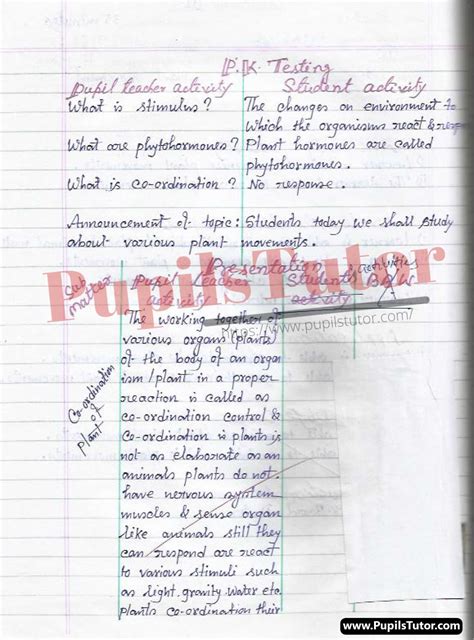 P.K. Testing
Pupil teacher activity Student activity
What is stimulus? The changes on environment to
Which the organisms react &
What are phytohormones? Plant hormones are called
phytohormones.
What is co-ordination? No response.
Announcement of topic: Students today we shall study
about various plant movements.
PupilsTutor
https://www.pupilstutor.com/
Presentation
Sub matter Pupil teacher activity Students activity activities B.B.W
Co-ordination of Plant
The working together of
various organs (plants)
of the body of an organ
ism/plant in a proper
reaction is called as
co-ordination control &
co-ordination is plants is
not as elaborate as an
animals plants do not
have nervous system
muscles & sense organ
like animals still they
can respond are react
to various stimuli such
as light, gravity, water etc.
plants co-ordination their
www.PupilsTutor.com